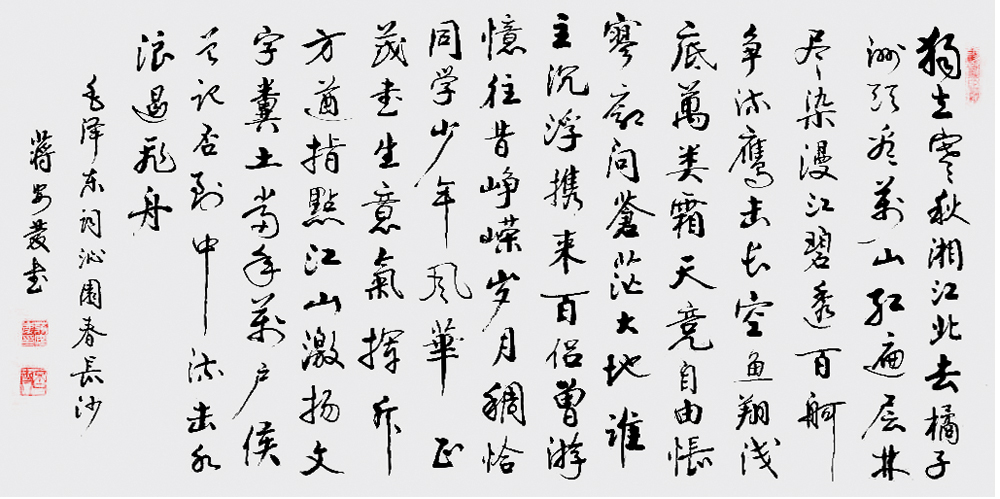 獨立寒秋湘江北去橘子
洲头看萬山红遍层林
尽染漫江碧透百舸
争流鹰击长空鱼翔浅
底萬类霜天竞自由怅
寥廓问蒼茫大地谁
主沉浮携来百侣曾游
憶往昔峥嵘岁月稠恰
同学少年风華正
茂书生意氣挥斥
方遒指點江山激扬文
字糞土當年萬户侯
曾记否到中流击水
浪遏飛舟
毛泽东词沁園春長沙
蒋安發书